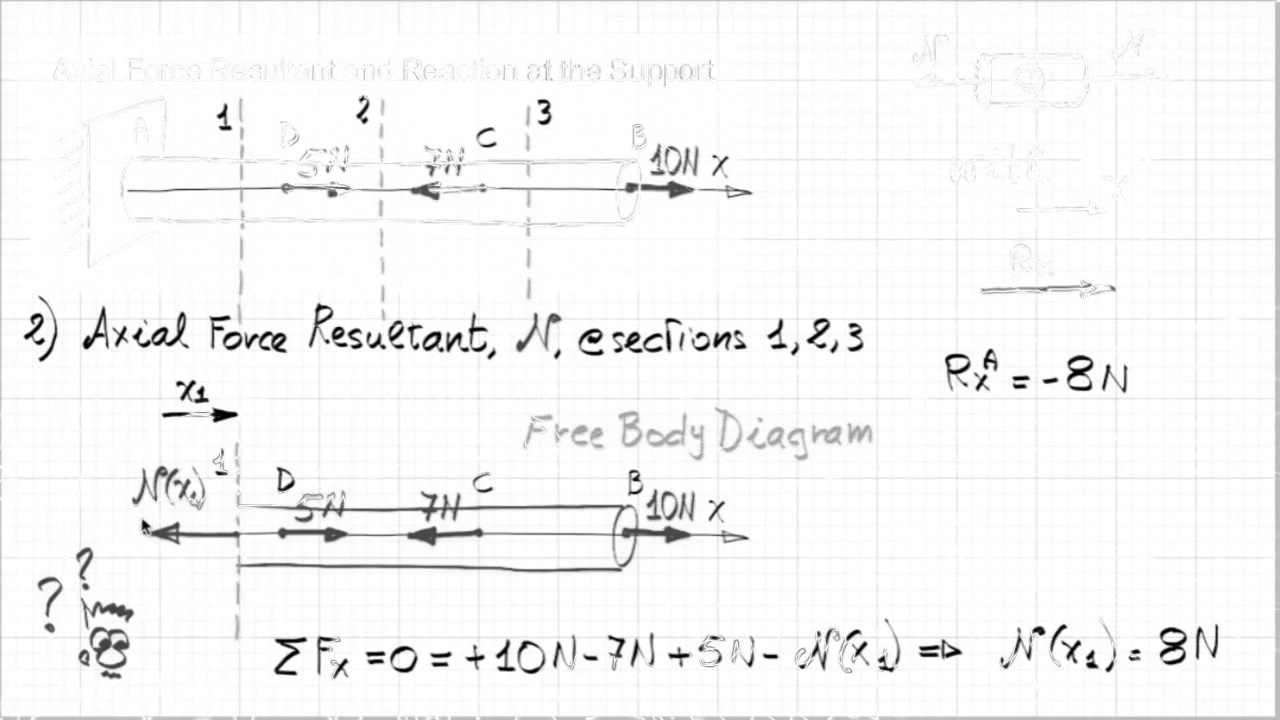 Axial Force Resultant and Reaction at the Support
N N
1 2 3
A D 5N 7N C B 10N x
with x
Rx
2) Axial Force Resultant, N, @sections 1,2,3
RxA = -8N
x1
Free Body Diagram
N(x1) 1 D 5N 7N C B 10N x
? ?
ΣFx = 0 = +10N - 7N + 5N - N(x1) => N(x1) = 8N